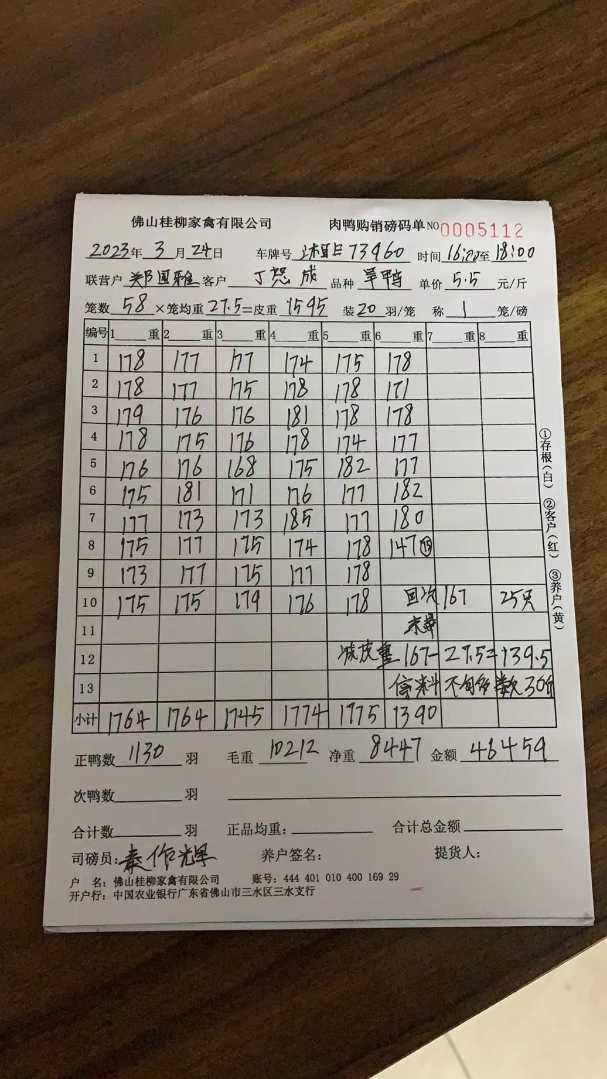 佛山桂柳家禽有限公司 肉鸭购销磅码单 NO 0005112
2023年 3 月 24日 车牌号 73460 时间 16:00至18:00
联营户 郑国雅 客户 丁 成 品种 旱鸭 单价 5.5 元/斤
笼数 58 ×笼均重 27.5=皮重 1595 装20 羽/笼 称 1 笼/磅
编号 1 重 2 重 3 重 4 重 5 重 6 重 7 重 8 重
1 178 177 177 174 175 178
2 178 177 175 178 178 171
3 179 176 176 181 178 178
4 178 175 176 178 174 177
5 176 176 168 175 182 177
6 175 181 171 176 177 182
7 177 173 173 185 177 180
8 175 177 175 174 178 147 ⑮
9 173 177 175 177 178
10 175 175 179 176 178 回次 167 25只
11
12 皮重 167-27.5=139.5
13 停料不 300
小计 1764 1764 1745 1774 1775 1390
正鸭数 1130 羽 毛重 10212 净重 8447 金额 46459
次鸭数 羽
合计数 羽 正品均重: 合计总金额
司磅员: 作辉 养户签名: 提货人:
户 名: 佛山桂柳家禽有限公司 账号: 444 401 010 400 169 29
开户行: 中国农业银行广东省佛山市三水区三水支行
①存根(白) ②客户(红) ③养户(黄)